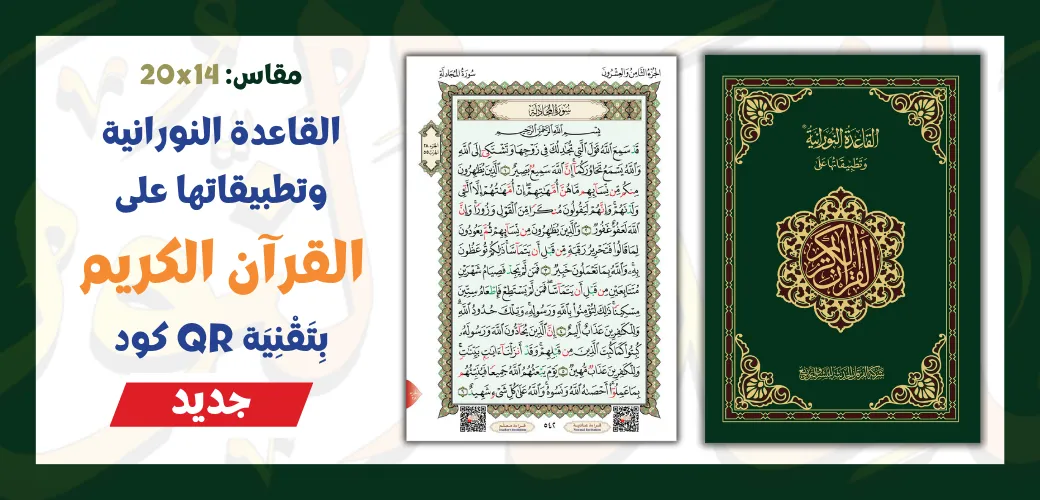 مقاس: 20x14
القاعدة النورانية
وتطبيقاتها على
القرآن الكريم
بِتَقْنِيَة QR كود
جديد
الجزء الثامن والعشرون
سورة المجادلة
سُورَةُ المُجَادلة
بِسْمِ اللَّهِ الرَّحْمَٰنِ الرَّحِيمِ
قَدْ سَمِعَ اللَّهُ قَوْلَ الَّتِي تُجَادِلُكَ فِي زَوْجِهَا وَتَشْتَكِي إِلَى اللَّهِ
وَاللَّهُ يَسْمَعُ تَحَاوُرَكُمَا إِنَّ اللَّهَ سَمِيعٌ بَصِيرٌ ١ الَّذِينَ يُظَاهِرُونَ
مِنكُم مِّن نِّسَائِهِم مَّا هُنَّ أُمَّهَاتِهِمْ إِنْ أُمَّهَاتُهُمْ إِلَّا اللَّائِي
وَلَدْنَهُمْ وَإِنَّهُمْ لَيَقُولُونَ مُنكَرًا مِّنَ الْقَوْلِ وَزُورًا وَإِنَّ
اللَّهَ لَعَفُوٌّ غَفُورٌ ٢ وَالَّذِينَ يُظَاهِرُونَ مِن نِّسَائِهِمْ ثُمَّ يَعُودُونَ
لِمَا قَالُوا فَتَحْرِيرُ رَقَبَةٍ مِّن قَبْلِ أَن يَتَمَاسَّا ذَٰلِكُمْ تُوعَظُونَ
بِهِ وَاللَّهُ بِمَا تَعْمَلُونَ خَبِيرٌ ٣ فَمَن لَّمْ يَجِدْ فَصِيَامُ شَهْرَيْنِ
مُتَتَابِعَيْنِ مِن قَبْلِ أَن يَتَمَاسَّا فَمَن لَّمْ يَسْتَطِعْ فَإِطْعَامُ سِتِّينَ
مِسْكِينًا ذَٰلِكَ لِتُؤْمِنُوا بِاللَّهِ وَرَسُولِهِ وَتِلْكَ حُدُودُ اللَّهِ
وَلِلْكَافِرِينَ عَذَابٌ أَلِيمٌ ٤ إِنَّ الَّذِينَ يُحَادُّونَ اللَّهَ وَرَسُولَهُ
كُبِتُوا كَمَا كُبِتَ الَّذِينَ مِن قَبْلِهِمْ وَقَدْ أَنزَلْنَا آيَاتٍ بَيِّنَاتٍ
وَلِلْكَافِرِينَ عَذَابٌ مُّهِينٌ ٥ يَوْمَ يَبْعَثُهُمُ اللَّهُ جَمِيعًا فَيُنَبِّئُهُم
بِمَا عَمِلُوا أَحْصَاهُ اللَّهُ وَنَسُوهُ وَاللَّهُ عَلَىٰ كُلِّ شَيْءٍ شَهِيدٌ ٦
٥٤٢
القاعدة النورانية
وتطبيقاتها على
القرآن الكريم